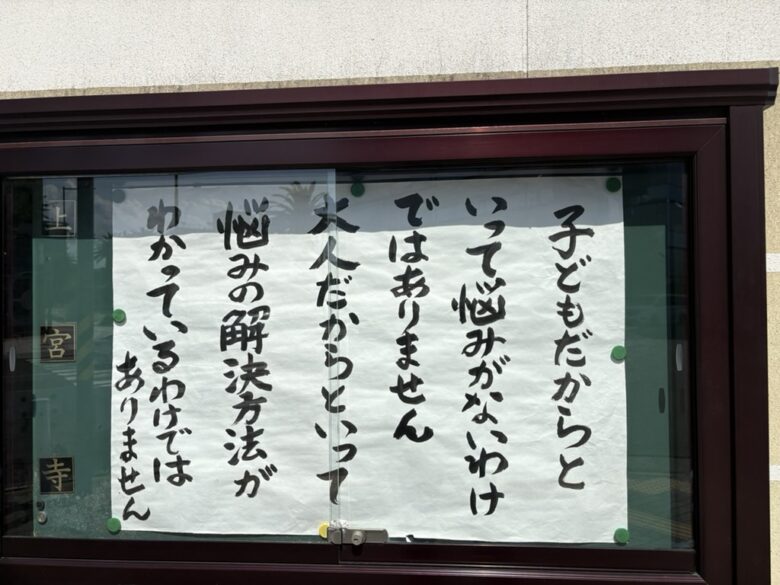 子どもだからと
いって悩みがないわけ
ではありません
大人だからといって
悩みの解決方法が
わかっているわけでは
ありません
上宮寺